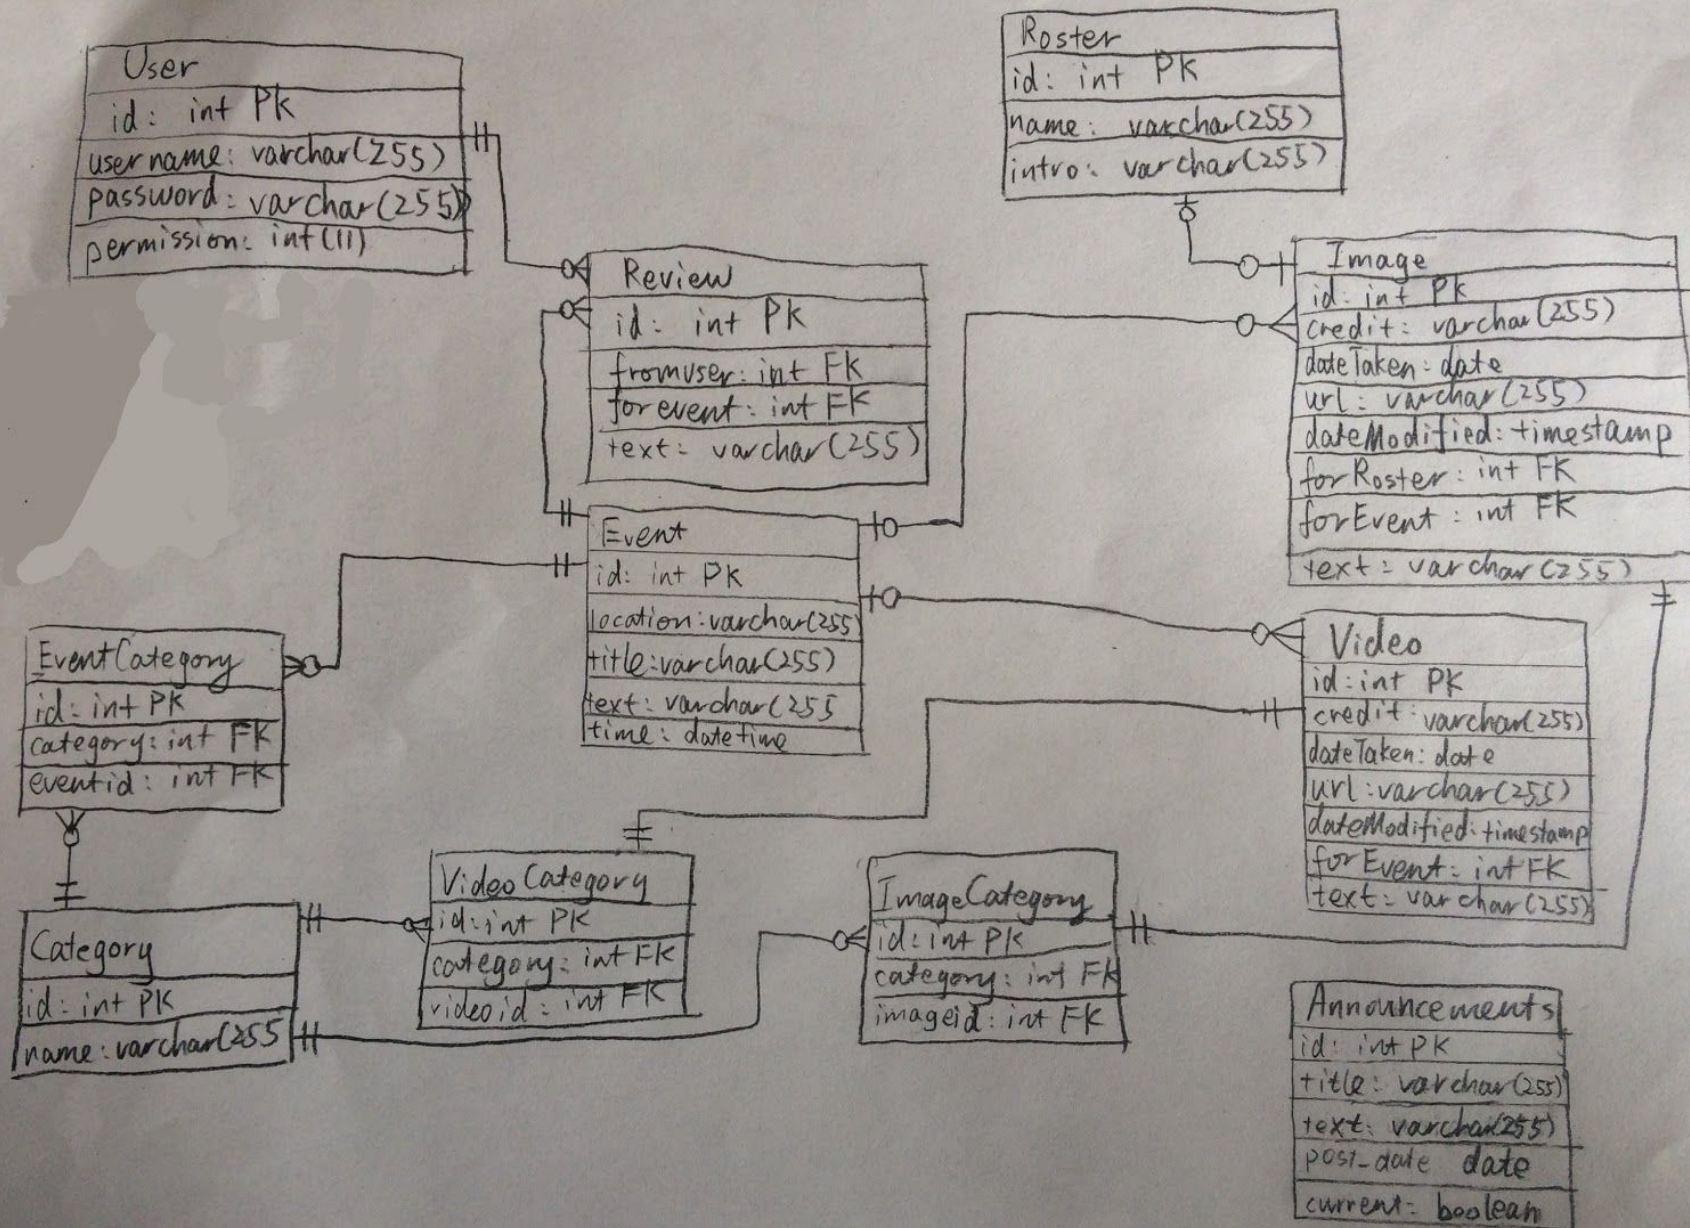 User
id: int PK
username: varchar(255)
password: varchar(255)
permission: int(11)
Roster
id: int PK
name: varchar(255)
intro: varchar(255)
Review
id: int PK
fromuser: int FK
forevent: int FK
text: varchar(255)
Image
id: int PK
credit: varchar(255)
dateTaken: date
url: varchar(255)
dateModified: timestamp
forRoster: int FK
forEvent: int FK
text: varchar(255)
Event
id: int PK
location: varchar(255)
title: varchar(255)
text: varchar(255
time: datetime
EventCategory
id: int PK
category: int FK
eventid: int FK
Video
id: int PK
credit: varchar(255)
dateTaken: date
url: varchar(255)
dateModified: timestamp
forEvent: int FK
text: varchar(255)
Category
id: int PK
name: varchar(255
VideoCategory
id: int PK
category: int FK
videoid: int FK
ImageCategory
id: int PK
category: int FK
imageid: int FK
Announcements
id: int PK
title: varchar(255)
text: varchar(255)
post_date date
current: boolean